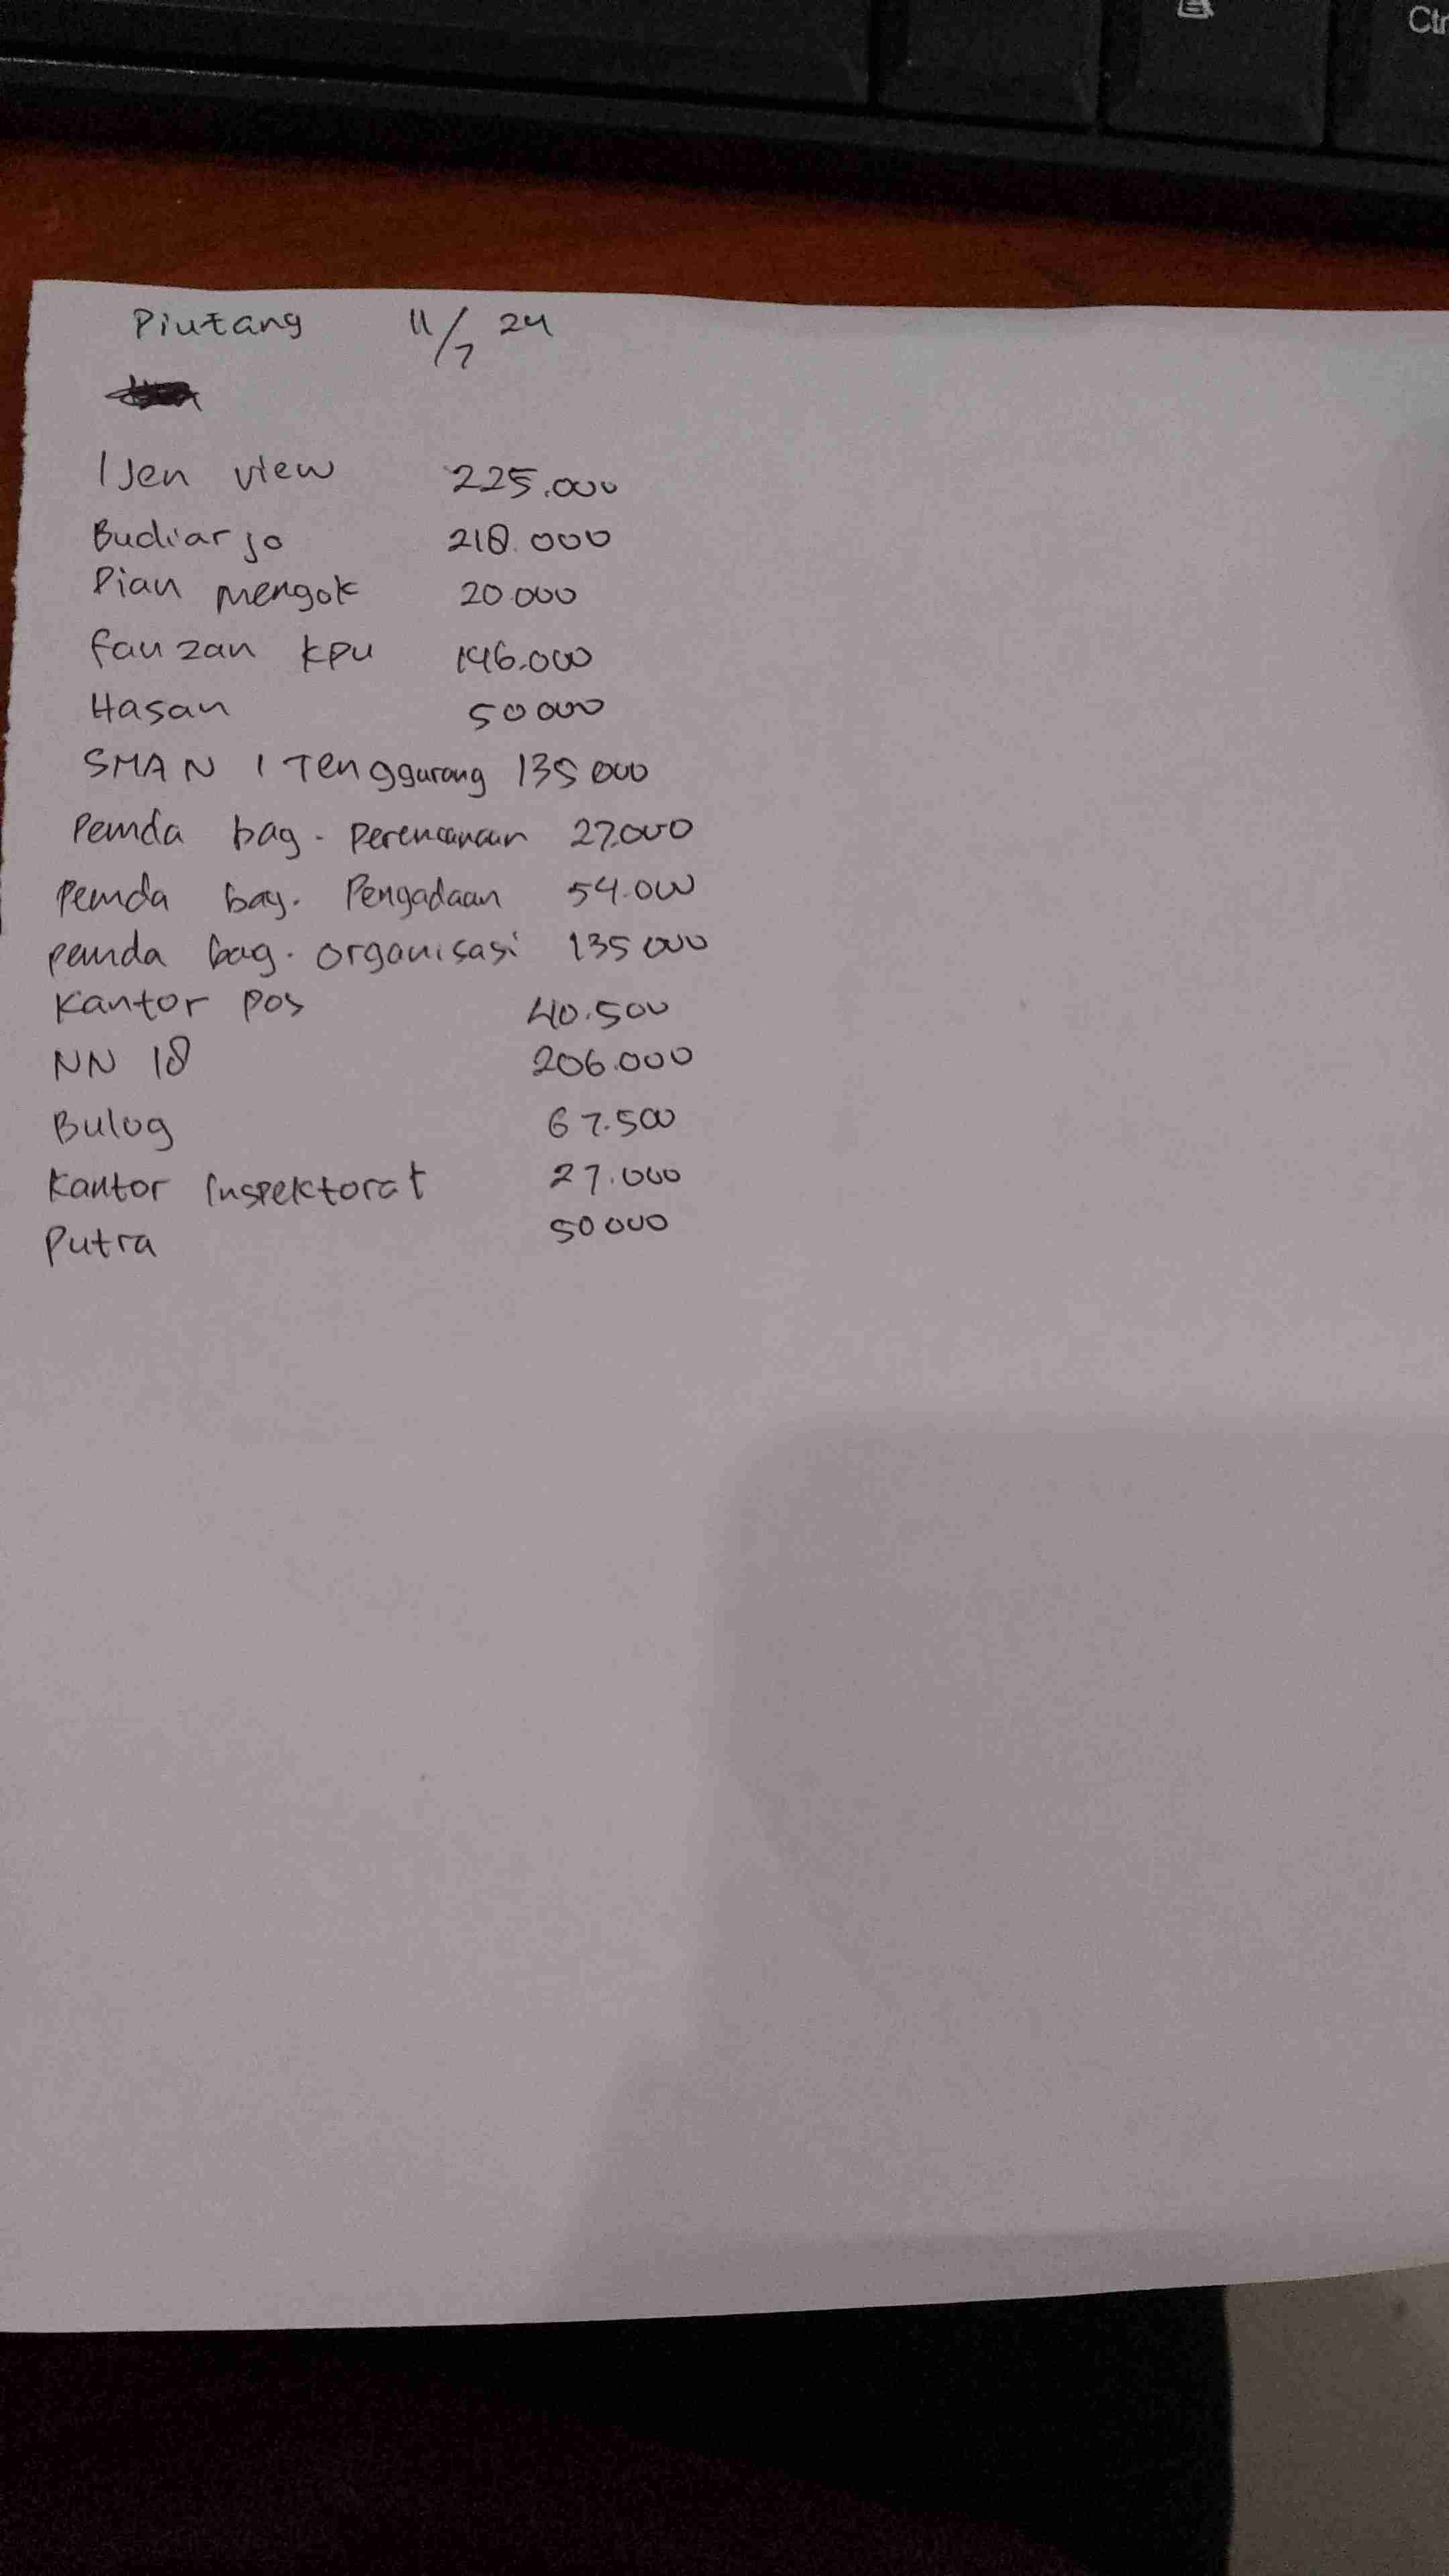 Ctr
Piutang 11/7 24
Ijen view 225.000
Budiarjo 218.000
Pian mengok 20.000
fauzan kpu 146.000
Hasan 50000
SMAN 1 Tenggarang 135 000
Pemda bag. perencanaan 27.000
Pemda bag. Pengadaan 54.000
pemda bag. organisasi 135 000
Kantor pos 40.500
NN 18 206.000
Bulog 67.500
Kantor Inspektorat 27.000
Putra 50 000